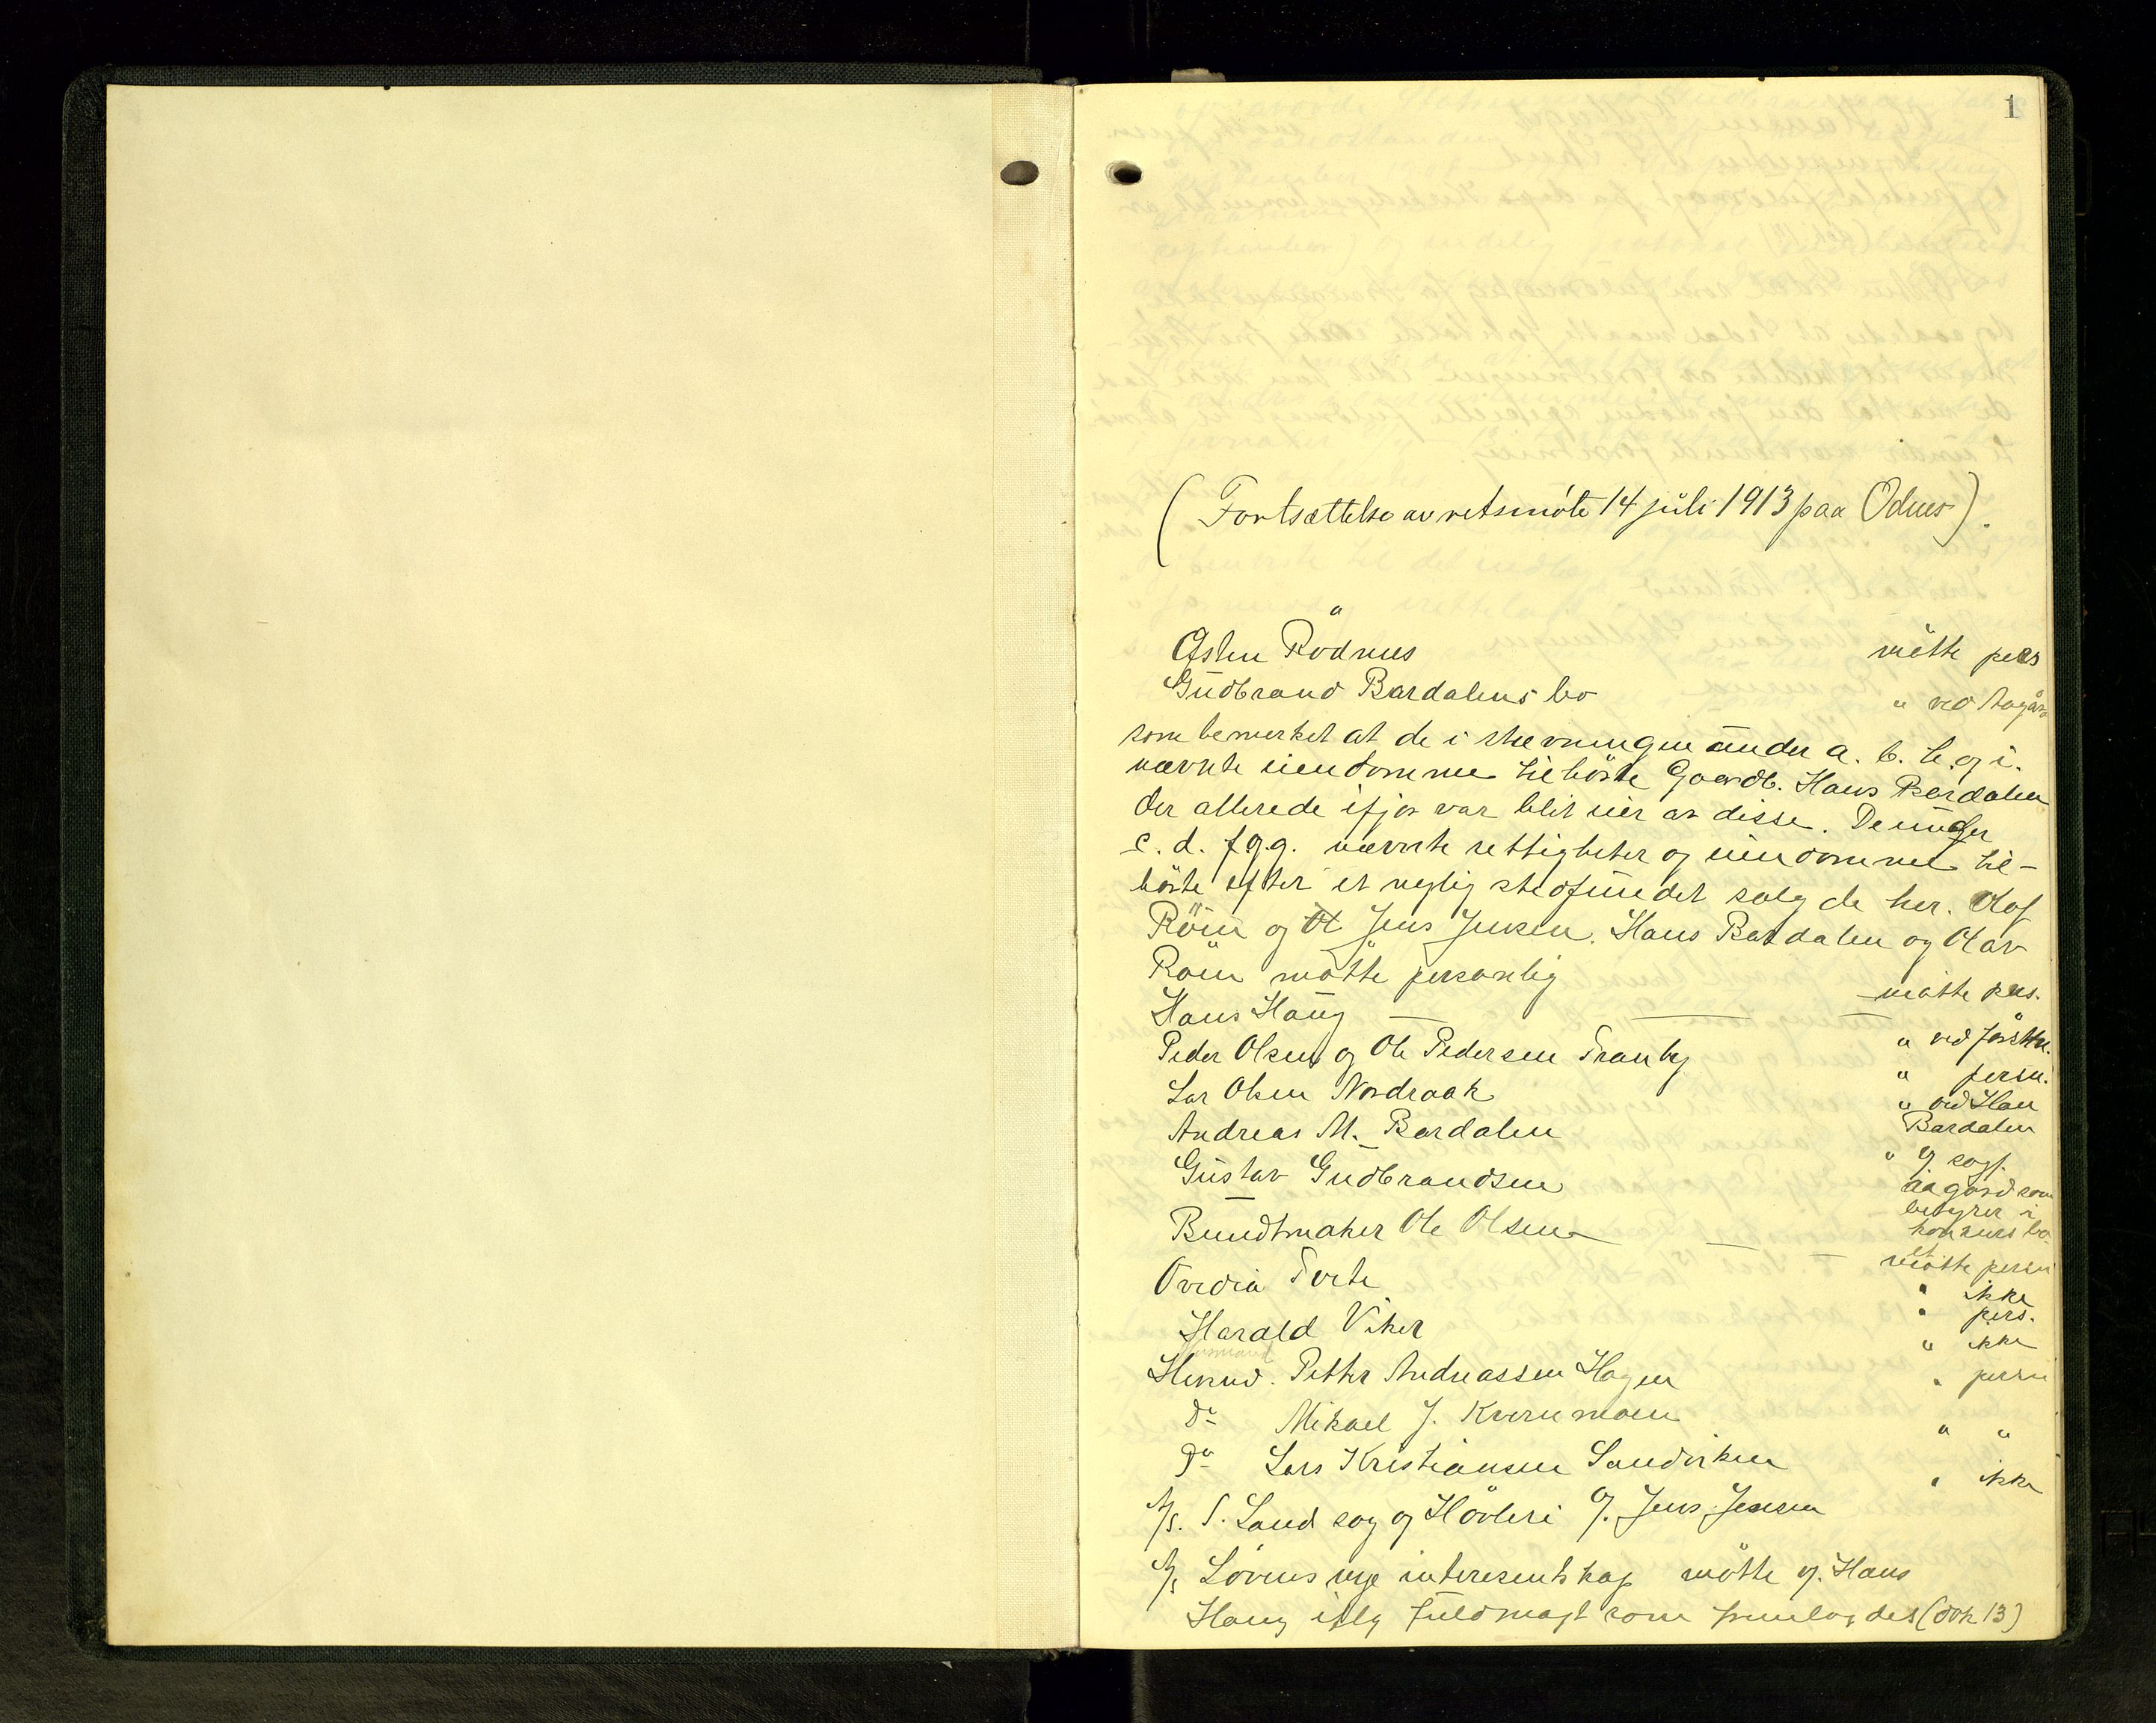 1
(Fortsættelse av retsmöte 14 juli 1913 paa Odnes).
Østen Rödnes mötte pers
Gudbrand Bardalens bo " ved Aagård
som bemerket at de i stævningen under a. b. h. og i.
nævnte eiendomme tilhörte Gaardb. Hans Bardalen
der allerede ifjor var blit eier av disse. De under
c. d. f og g. nævnte rettigheter og eiendomme til-
hörte efter et nylig stedfundet salg de her. Olaf
Röin og Jens Jensen. Hans Bardalen og Olav
Röin mötte personlig
Hans Haug — mötte pers.
Peder Olsen og Ole Pedersen Tranby " ved förstn.
Lar Olsen Nordraak " persn.
Andreas M. Bardalen " ved Han
Bardalen
Gustav Gudbrandsen " v. sagf.
Aagård som
bestyrer i
konkursbo
et
Bundtmaker Ole Olsen — mötte persn
Ovidia Torte " ikke
Harald Viker " pers.
Husmand
Husmd. Petter Andreassen Hagen " ikke
do Mikael J. Kvernmoen " persn
do Lars Kristiansen Sandviken " "
A/s. S. Land sag og Hövleri v. Jens Jensen " ikke
A/s Lövens nye interesentskap mötte v. Hans
Haug iflg fuldmagt som fremlagdes (dok 13)